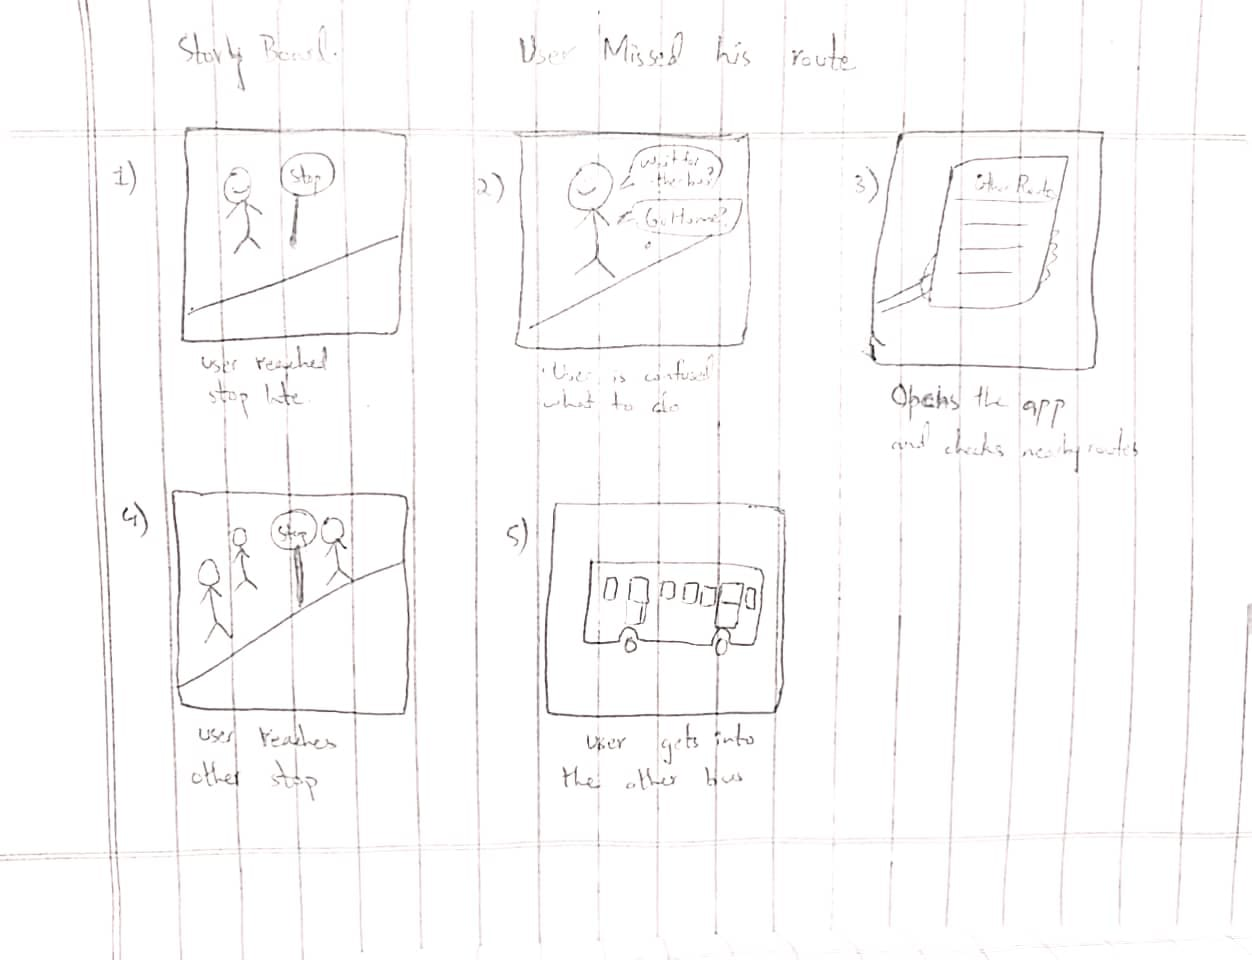 Story Board.
User Missed his route
1)
Stop
user reached
stop late.
2)
Wait for
the bus?
Go Home?
User is confused
what to do
3)
Other Routes
Opens the app
and checks nearby routes
4)
Stop
user reaches
other stop
5)
User gets into
the other bus